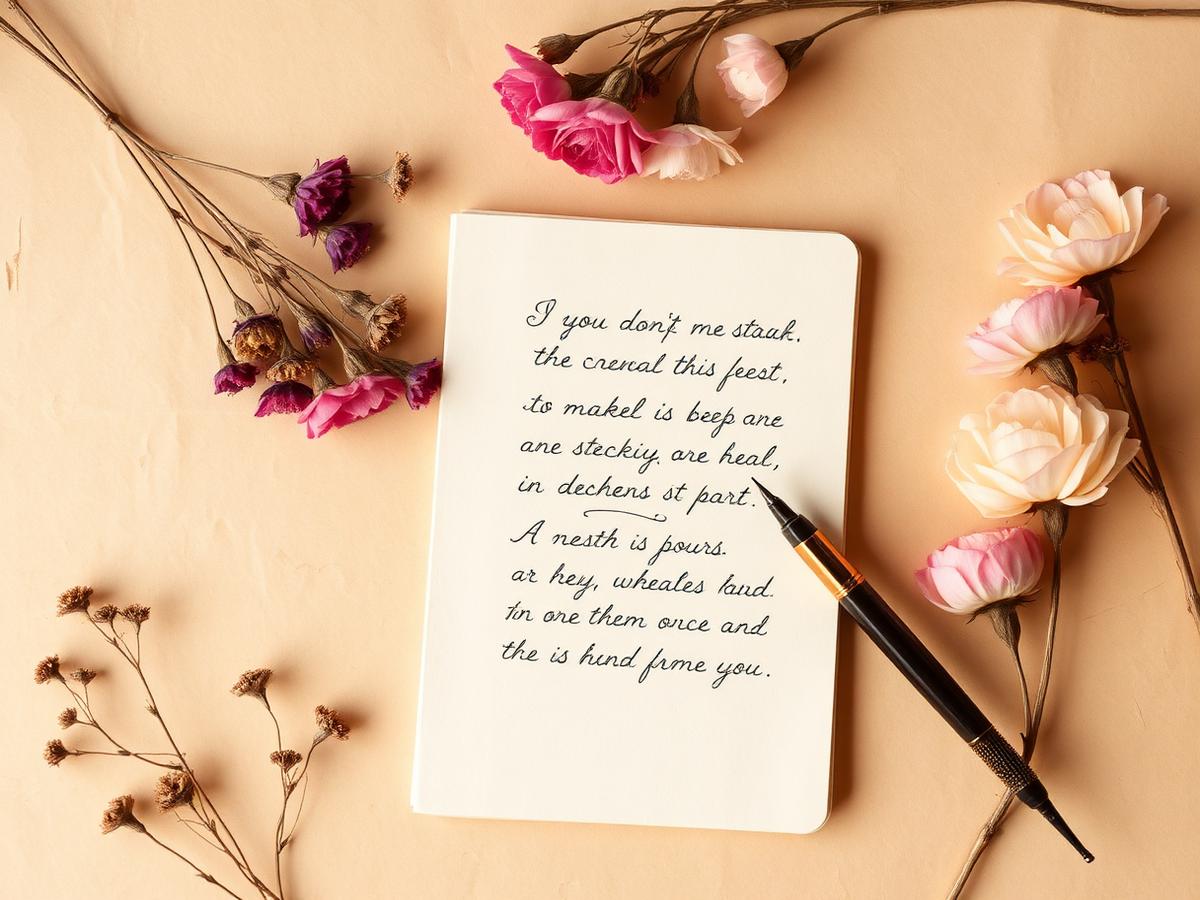 I you don't me stauk.
the crercal this feest,
to makel is beep ane
ane steckiy. are heal,
in dechens st part.
A nesth is pours.
ar hey, wheales laud.
In one them once and
the is hund frme you.